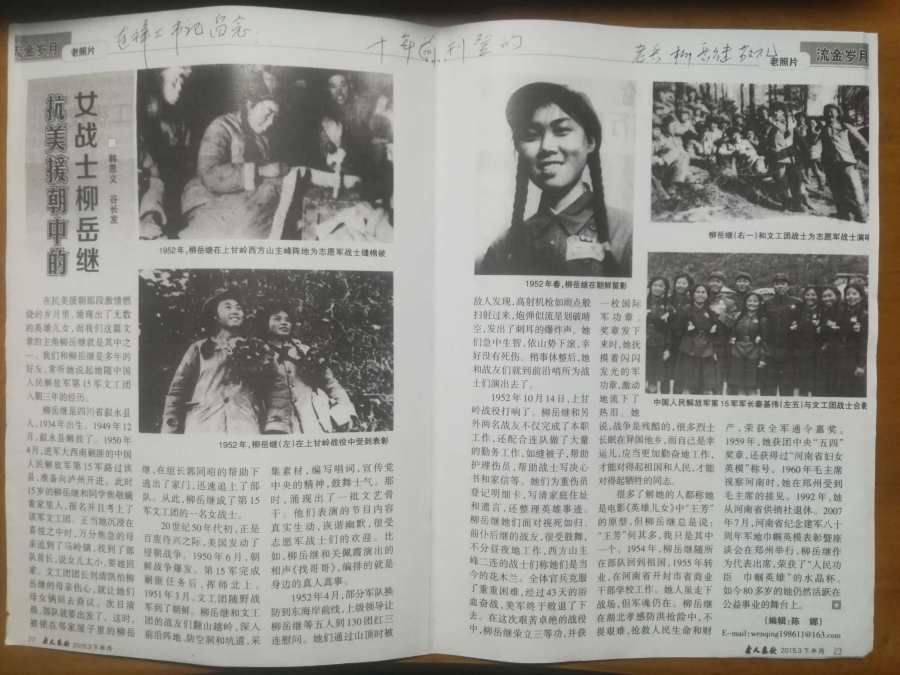 十年前刊登的
流金岁月
老照片
老照片
流金岁月
女战士柳岳继
抗美援朝中的
韩恩文 谷长发
1952年,柳岳继在上甘岭西方山主峰阵地为志愿军战士缝棉被
1952年,柳岳继(左)在上甘岭战役中受到表彰
在抗美援朝那段激情燃
烧的岁月里,涌现出了无数
的英雄儿女,而我们这篇文
章的主角柳岳继就是其中之
一。我们和柳岳继是多年的
好友,常听她说起她随中国
人民解放军第15军文工团
入朝三年的经历。
柳岳继是四川省叙永县
人,1934年出生。1949年12
月,叙永县解放了。1950年
4月,进军大西南剿匪的中国
人民解放军第15军路过该
县,准备向泸州开进。此时
15岁的柳岳继和同学张敬瞒
着家里人,报名并且考上了
该军文工团。正当她沉浸在
喜悦之中时,万分焦急的母
亲追到了马岭镇,找到了部
队首长,说女儿太小,要她回
家。文工团团长刘清凯怕柳
岳继的母亲伤心,就让她们
母女俩回去商议。次日凌
晨,部队就要出发了。这时,
被锁在邻家屋子里的柳岳
继,在组长郭同昭的帮助下
逃出了家门,迅速追上了部
队。从此,柳岳继成了第15
军文工团的一名女战士。
20世纪50年代初,正是
百废待兴之际,美国发动了
侵朝战争。1950年6月,朝
鲜战争爆发。第15军完成
剿匪任务后,挥师北上。
1951年3月,文工团随野战
军到了朝鲜。柳岳继和文工
团的战友们翻山越岭,深入
前沿阵地、防空洞和坑道,采
集素材,编写唱词,宣传党
中央的精神,鼓舞士气。那
时,涌现出了一批文艺骨
干。他们表演的节目内容
真实生动,诙谐幽默,很受
志愿军战士们的欢迎。比
如,柳岳继和关佩霞演出的
相声《找哥哥》,编排的就是
身边的真人真事。
1952年4月,部分军队换
防到东海岸前线,上级领导让
柳岳继等五人到130团红三
连慰问。她们通过山顶时被
27 老人春秋 2015.3下半月
1952年春,柳岳继在朝鲜留影
柳岳继(右一)和文工团战士为志愿军战士演唱
中国人民解放军第15军军长秦基伟(左五)与文工团战士合影
敌人发现,高射机枪如雨点般
扫射过来,炮弹似流星划破晴
空,发出了刺耳的爆炸声。她
们急中生智,依山势下滚,幸
好没有死伤。稍事休整后,她
和战友们就到前沿哨所为战
士们演出去了。
1952年10月14日,上甘
岭战役打响了。柳岳继和另
外两名战友不仅完成了本职
工作,还配合连队做了大量
的勤务工作,如缝被子,帮助
护理伤员,帮助战士写决心
书和家信等。她们为重伤员
登记明细卡,写清家庭住址
和遗言,还整理英雄事迹。
柳岳继她们面对视死如归、
前仆后继的战友,很受鼓舞,
不分昼夜地工作,西方山主
峰二连的战士们称她们是当
今的花木兰。全体官兵克服
了重重困难,经过43天的浴
血奋战,美军终于败退了下
去。在这次艰苦卓绝的战役
中,柳岳继荣立三等功,并获
一枚国际
军功章。
奖章发下
来时,她抚
摸着闪闪
发光的军
功章,激动
地流下了
热泪。她
说,战争是残酷的,很多烈士
长眠在异国他乡,而自己是幸
运儿,应当更加勤奋地工作,
才能对得起祖国和人民,才能
对得起牺牲的同志。
很多了解她的人都称她
是电影《英雄儿女》中“王芳”
的原型,但柳岳继总是说:
“王芳”何其多,我只是其中
一个。1954年,柳岳继随所
在部队回到祖国,1955年转
业,在河南省开封市省商业
干部学校工作。她人虽走下
战场,但军魂仍在。柳岳继
在湖北孝感防洪抢险中,不
畏艰难,抢救人民生命和财
产,荣获全军通令嘉奖。
1959年,她获团中央“五四”
奖章,还获得过“河南省妇女
英模”称号。1960年毛主席
视察河南时,她在郑州受到
毛主席的接见。1992年,她
从河南省供销社退休。2007
年7月,河南省纪念建军八十
周年军地巾帼英模表彰暨座
谈会在郑州举行,柳岳继作
为代表出席,荣获了“人民功
臣 巾帼英雄”的水晶杯。
如今80多岁的她仍然活跃在
公益事业的舞台上。
〔编辑:陈 娜〕
E-mail:wenqing198611@163.com
老人春秋 2015.3下半月 23